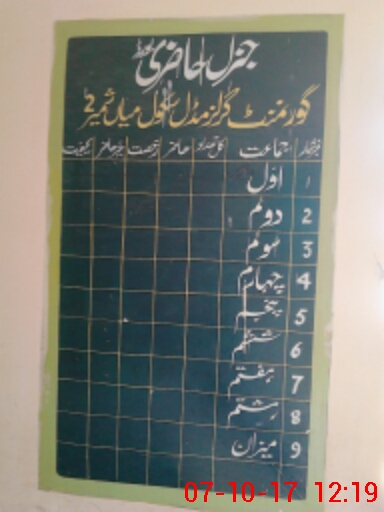 جنرل حاضری بورڈ
گورنمنٹ گرلز مڈل سکول میاں نمبر 2
نمبر شمار جماعت کل تعداد حاضر رخصت غیر حاضر کیفیت
1 اوّل
2 دوئم
3 سوئم
4 چہارم
5 پنجم
6 ششم
7 ہفتم
8 ہشتم
9 میزان
07-10-17 12:19